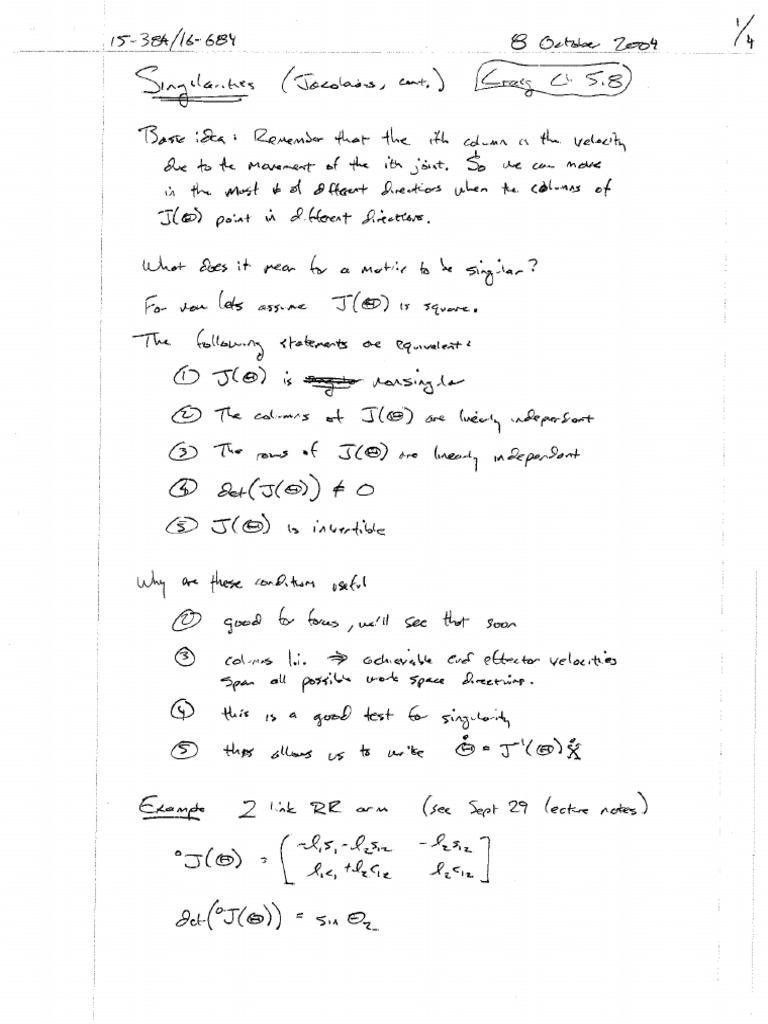 15-384/16-684 8 October 2004 1/4
Singularities (Jacobians, cont.) Craig Ch 5.8
Basic idea: Remember that the ith column is the velocity
due to the movement of the ith joint. So we can move
in the most # of different directions when the columns of
J(Θ) point in different directions.
What does it mean for a matrix to be singular?
For now lets assume J(Θ) is square.
The following statements are equivalent:
① J(Θ) is nonsingular
② The columns of J(Θ) are linearly independent
③ The rows of J(Θ) are linearly independent
④ det(J(Θ)) ≠ 0
⑤ J(Θ) is invertible
Why are these conditions useful
② good for forces, we'll see that soon
③ columns l.i. ⇒ achievable end effector velocities
span all possible work space directions.
④ this is a good test for singularity
⑤ this allows us to write Θ̇ = J⁻¹(Θ)Ẋ
Example 2 link RR arm (see Sept 29 lecture notes)
⁰J(Θ) = [ -l₁s₁-l₂s₁₂ -l₂s₁₂
l₁c₁+l₂c₁₂ l₂c₁₂ ]
det(⁰J(Θ)) = sin Θ₂